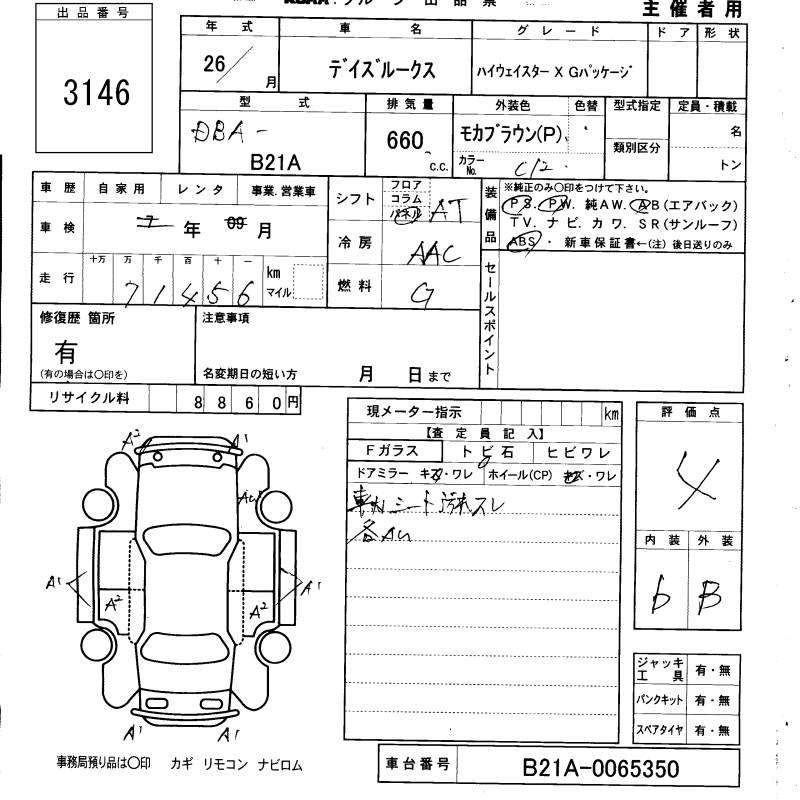 主催者用
出品番号
3146
年式 車名 グレード ドア 形状
26/月 デイズルークス ハイウェイスター X Gパッケージ
型式 排気量 外装色 色替 型式指定 定員・積載
DBA-
B21A
660 c.c.
モカブラウン(P)
カラーNo. C12
類別区分
名
トン
車歴 自家用 レンタ 事業.営業車
車検 7年 09月
走行 十万 万 千 百 十 一
71456 km マイル
シフト フロア コラム パネル AT
冷房 AAC
燃料 G
装備品
※純正のみ〇印をつけて下さい。
PS. PW. 純AW. AB(エアバック)
TV. ナビ. カワ. SR(サンルーフ)
ABS・ 新車保証書←(注) 後日送りのみ
セールスポイント
修復歴 箇所
有
(有の場合は〇印を)
注意事項
名変期日の短い方 月 日まで
リサイクル料 8860円
現メーター指示 km
【査定員記入】
Fガラス トビ石 ヒビワレ
ドアミラー キズ・ワレ ホイール(CP) キズ・ワレ
車内シート汚れスレ
各AU
評価点
4
内装 外装
b B
A2 A1
AU
A1 A2 A2 A1
A1 A1
ジャッキ工具 有・無
パンクキット 有・無
スペアタイヤ 有・無
事務局預り品は〇印 カギ リモコン ナビロム
車台番号 B21A-0065350